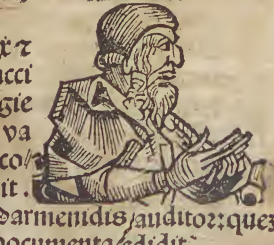 xꝛ ⁊
ucci
gie
va
co/
it.
Parmenidis/auditor: quez
documenta/edidit